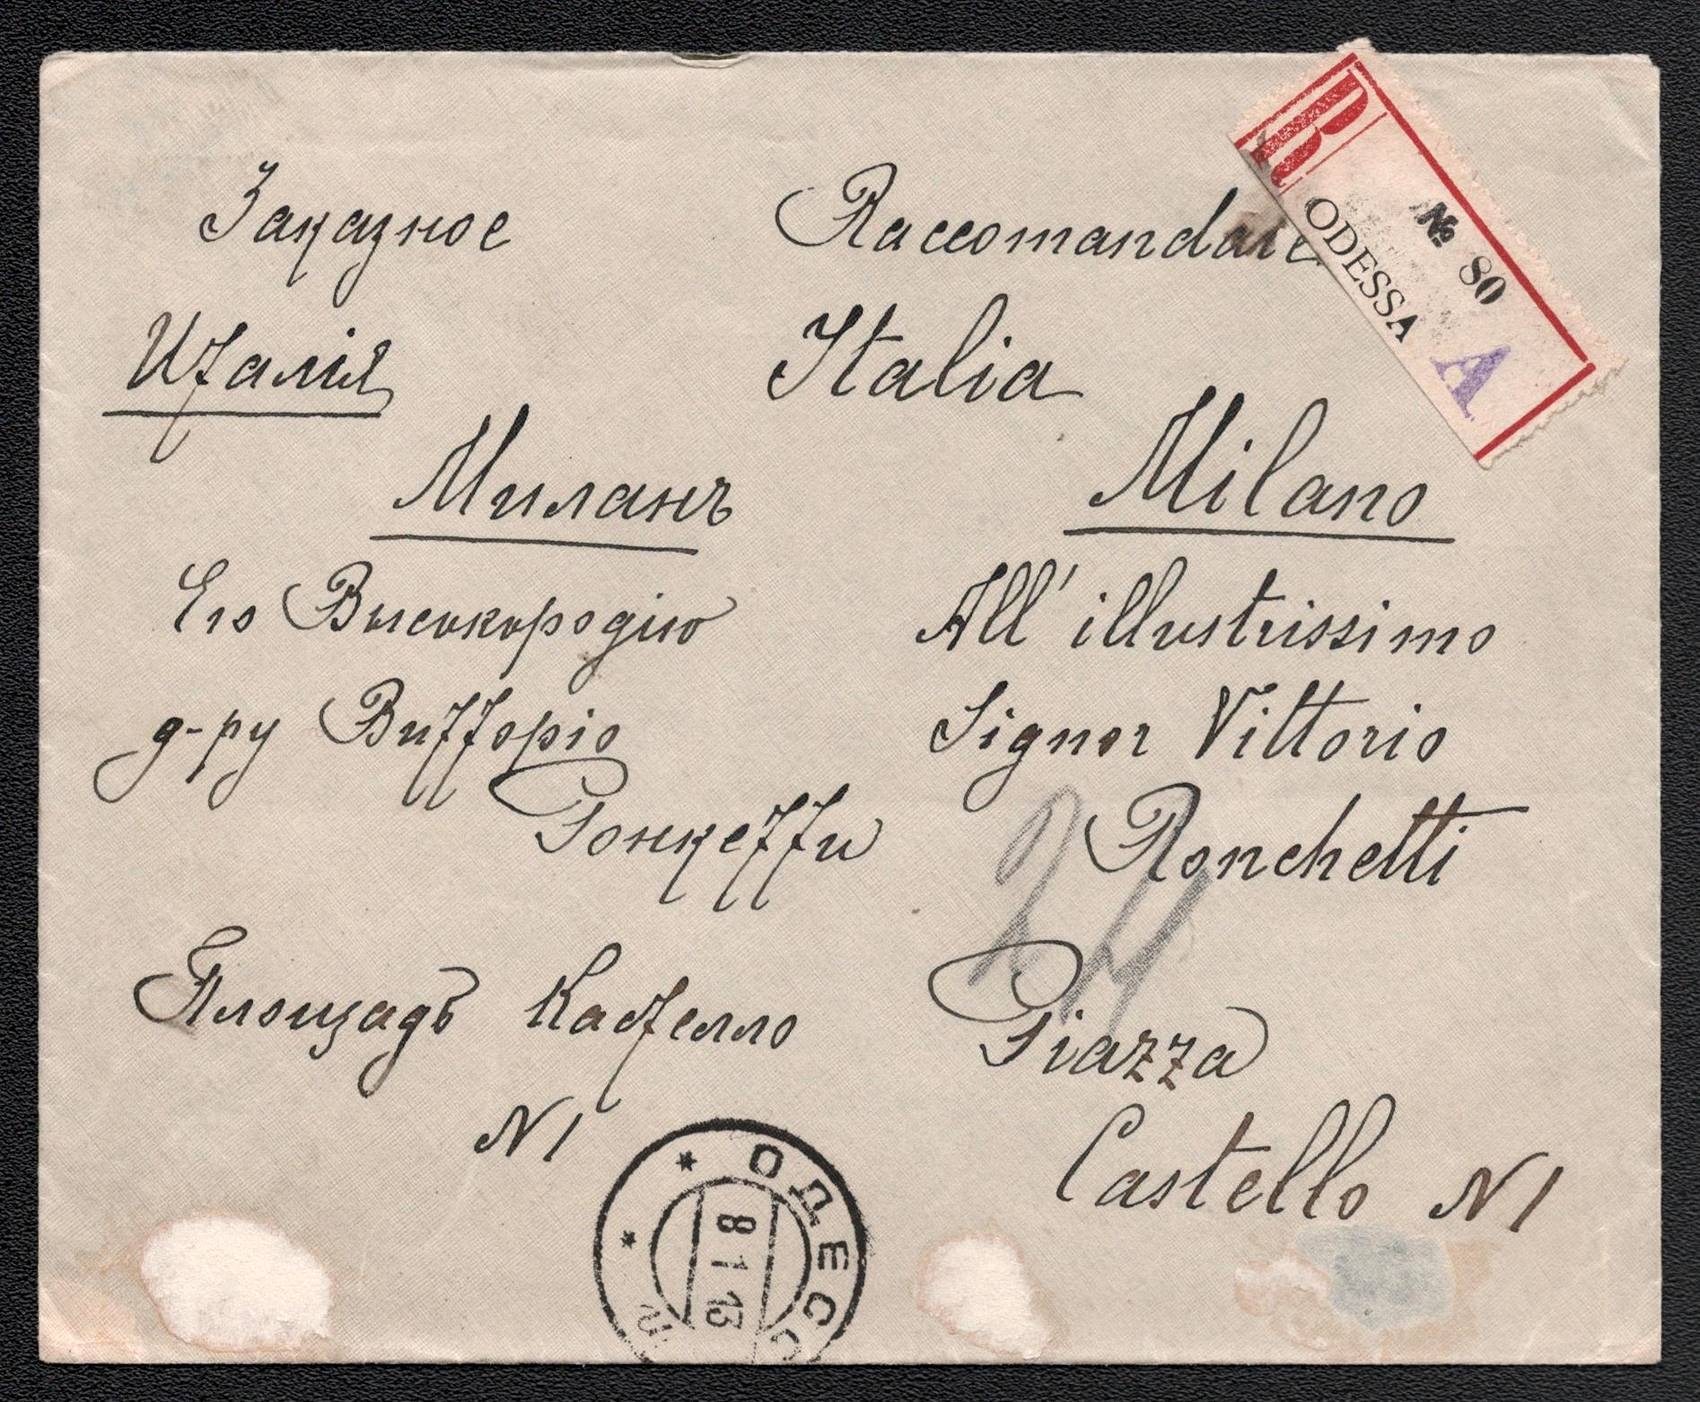 Заказное
Италія
Миланъ
Его Высокородію
д-ру Витторіо
Ронкетти
Площадь Кастелло
N 1
Raccomandate
Italia
Milano
All' illustrissimo
Signor Vittorio
Ronchetti
Piazza
Castello N 1
R
ODESSA
№ 80
A
24
ОДЕСС
8 1 13